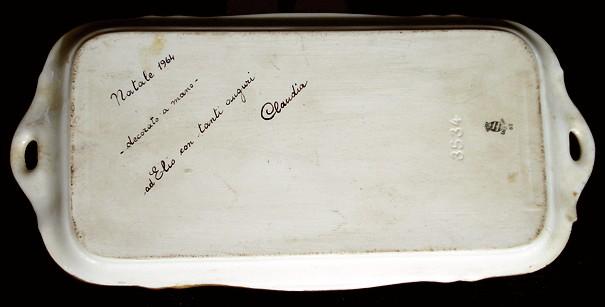 Natale 1964
- decorato a mano -
ad Elio con tanti auguri
Claudia
3534